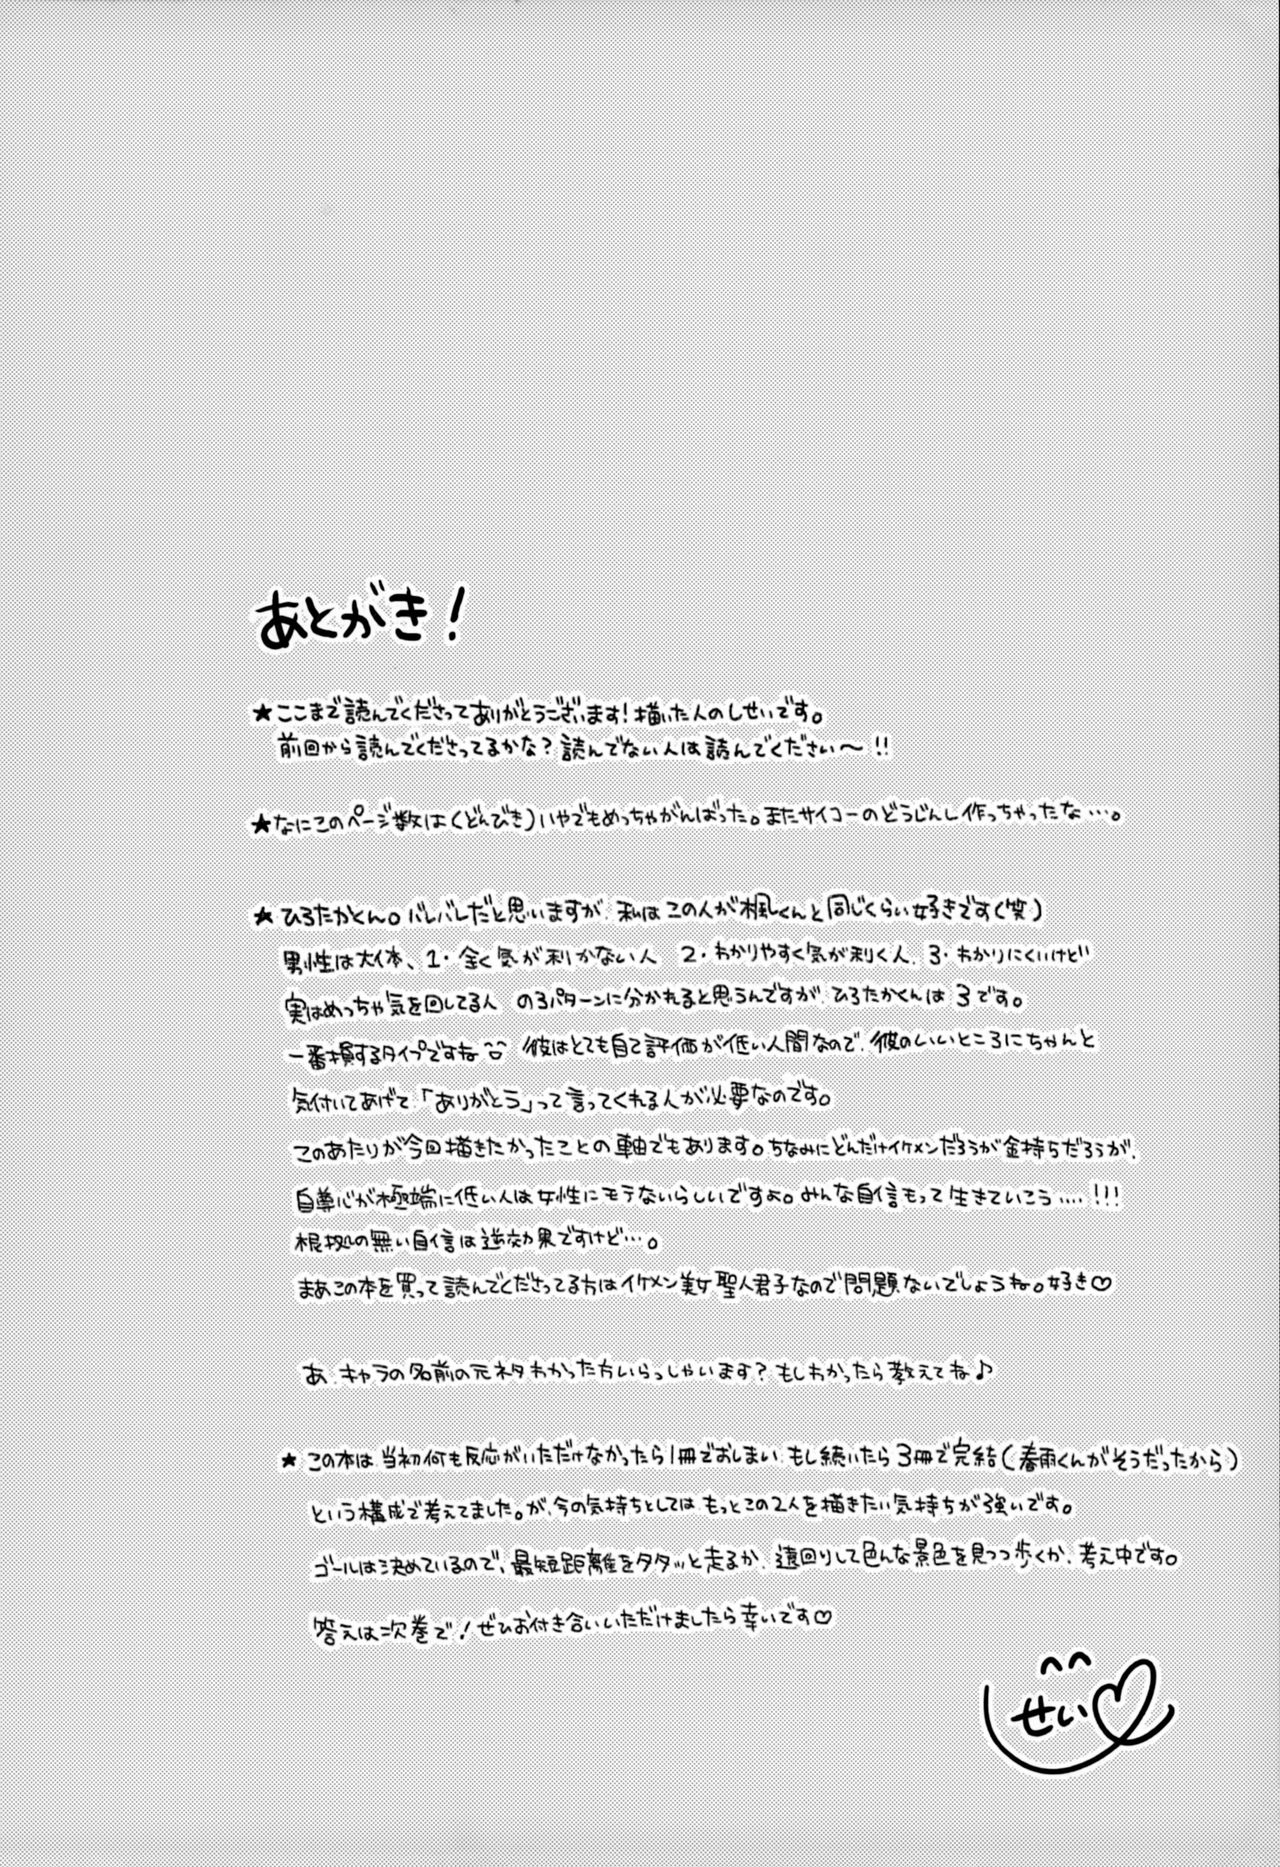 あとがき！
★ここまで読んでくださってありがとうございます！描いた人のしせいです。
前回から読んでくださってるかな？読んでない人は読んでください〜！！
★なにこのページ数は（どんびき）いやでもめっちゃがんばった。またサイコーのどうじんし作っちゃったな…。
★ひろたかくん。バレバレだと思いますが、私はこの人が楓くんと同じくらい好きです（笑）
男性は大体、1・全く気が利かない人 2・わかりやすく気が利く人、3・わかりにくいけど
実はめっちゃ気を回してる人 の3パターンに分かれると思うんですが、ひろたかくんは3です。
一番損するタイプですね 彼はとても自己評価が低い人間なので、彼のいいところにちゃんと
気付いてあげて、「ありがとう」って言ってくれる人が必要なのです。
このあたりが今回描きたかったことの軸でもあります。ちなみにどんだけイケメンだろうが金持ちだろうが、
自尊心が極端に低い人は女性にモテないらしいですよ。みんな自信もって生きていこう....！！！
根拠の無い自信は逆効果ですけど…。
まあこの本を買って読んでくださってる方はイケメン美女聖人君子なので問題ないでしょうね。好き♡
あ、キャラの名前の元ネタわかった方いらっしゃいます？もしわかったら教えてね♪
★この本は、当初何も反応がいただけなかったら1冊でおしまい、もし続いたら3冊で完結（春雨くんがそうだったから）
という構成で考えてました。が、今の気持ちとしては、もっとこの2人を描きたい気持ちが強いです。
ゴールは決めているので、最短距離をタタッと走るか、遠回りして色んな景色を見つつ歩くか、考え中です。
答えは次巻で！ぜひお付き合いいただけましたら幸いです♡
しせい♡